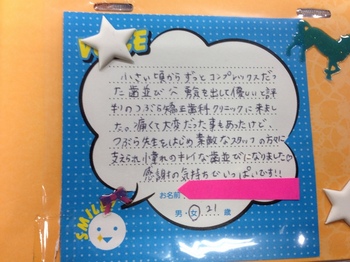 VOICE
小さい頃からずっとコンプレックスだっ
た歯並び。勇気を出して優しいと評
判のつぶら矯正歯科クリニックに来まし
た。痛くて大変だった事もあったけど
つぶら先生をはじめ素敵なスタッフの方々に
支えられ小憧れのキレイな歯並びになりました♡
感謝の気持ちでいっぱいです!!
お名前
男・女 21 歳
SMILE